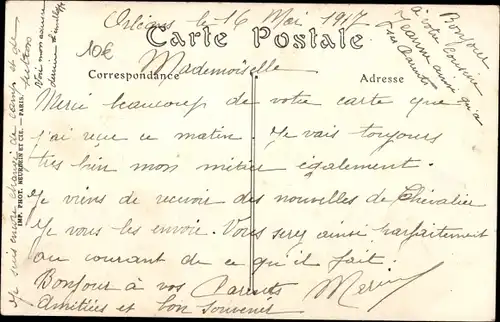 Orléans le 16 Mai 1917
10€
Carte Postale
Correspondance
Adresse
Mademoiselle
Merci beaucoup de votre carte que
j'ai reçue ce matin. Je vais toujours
très bien mon métier également.
Je viens de recevoir des nouvelles de Chevalier
Je vous les envoie. Vous serez ainsi parfaitement
au courant de ce qu'il fait.
Bonjour à vos Parents
amitiés et bon souvenir
Bonjour
à votre cousine
Jeanne ainsi qu'à
ses Parents
Je suis changé de camp
Voir mon adresse
IMP. PHOT. NEURDEIN ET CIE. - PARIS.